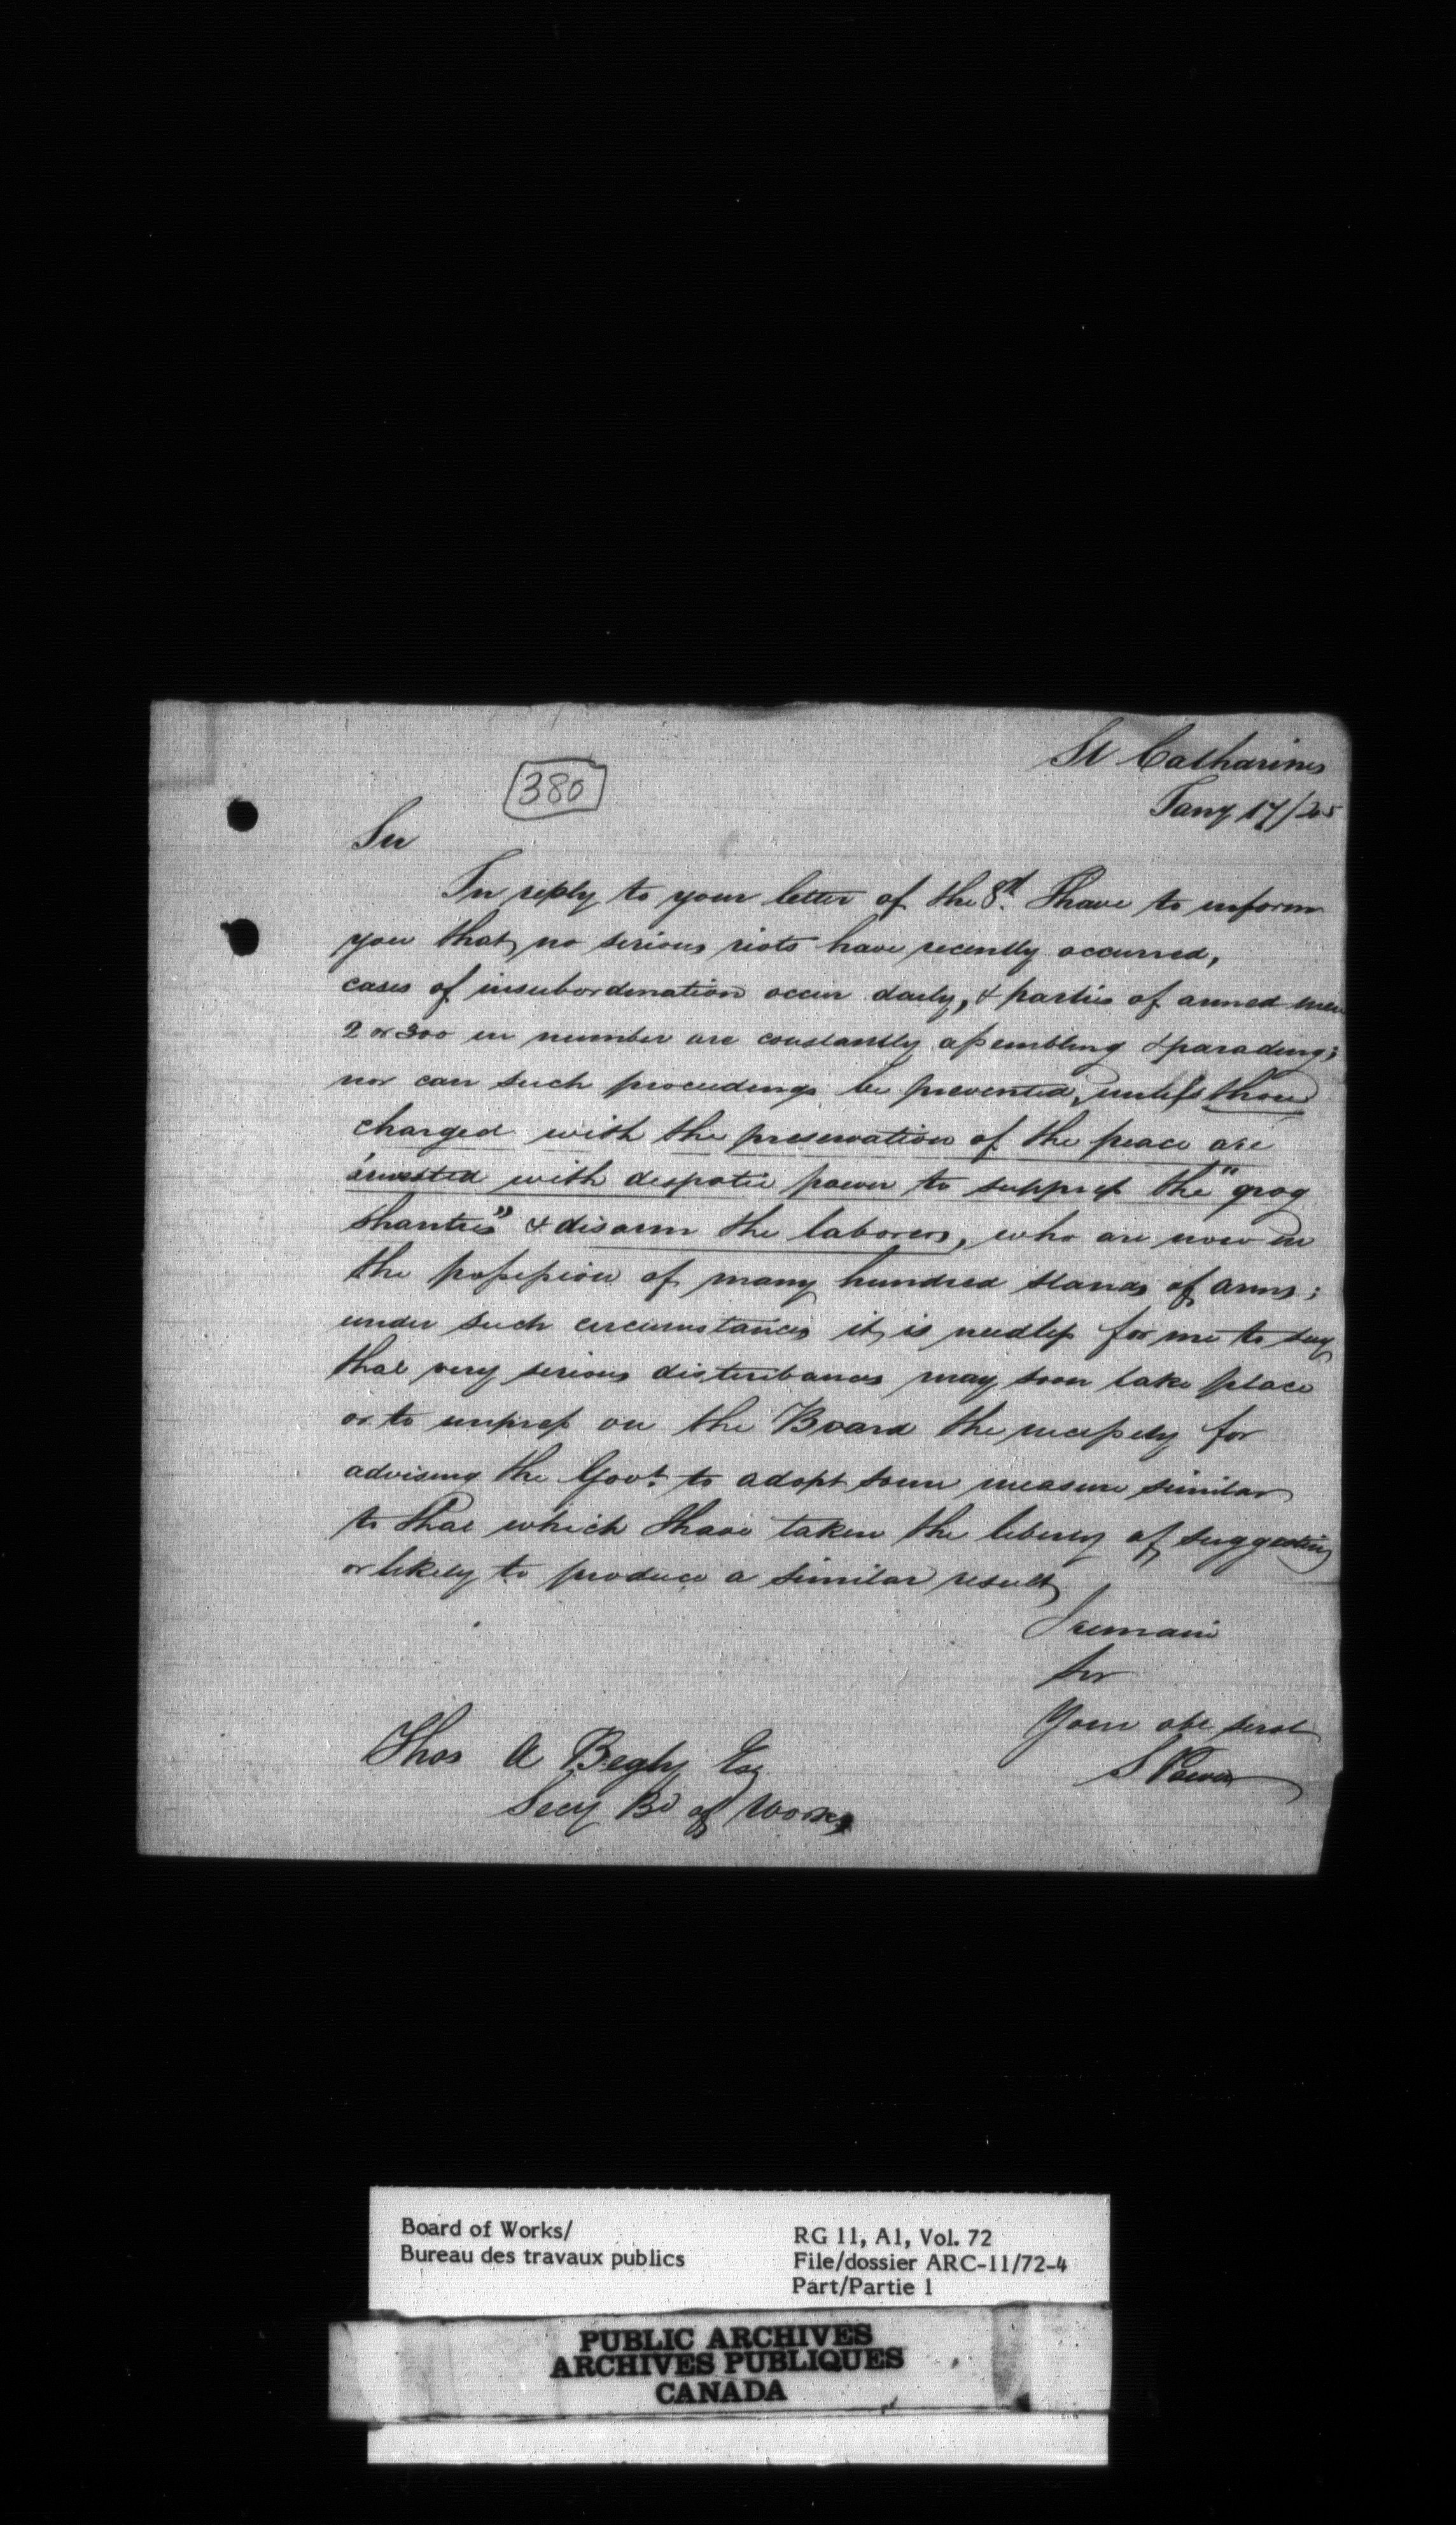 St Catharines
380
Jany 17/45
Sir
In reply to your letter of the 8th. I have to inform
you that no serious riots have recently occurred,
cases of insubordination occur daily, & parties of armed men
2 or 300 in number are constantly assembling & parading;
nor can such proceedings be prevented, unless those
charged with the preservation of the peace are
invested with despotic power to suppress the "grog
shanties" & disarm the laborers, who are now in
the possession of many hundred stands of arms;
under such circumstances it is needless for me to say
that very serious disturbances may soon take place
or to impress on the Board the necessity for
advising the Govt. to adopt some measure similar
to that which I have taken the liberty of suggesting
or likely to produce a similar result
I remain
Sir
Your obt servt
S Power
Thos A Begly Esq
Secy Bd of Works
Board of Works/
Bureau des travaux publics
RG 11, A1, Vol. 72
File/dossier ARC-11/72-4
Part/Partie 1
PUBLIC ARCHIVES
ARCHIVES PUBLIQUES
CANADA